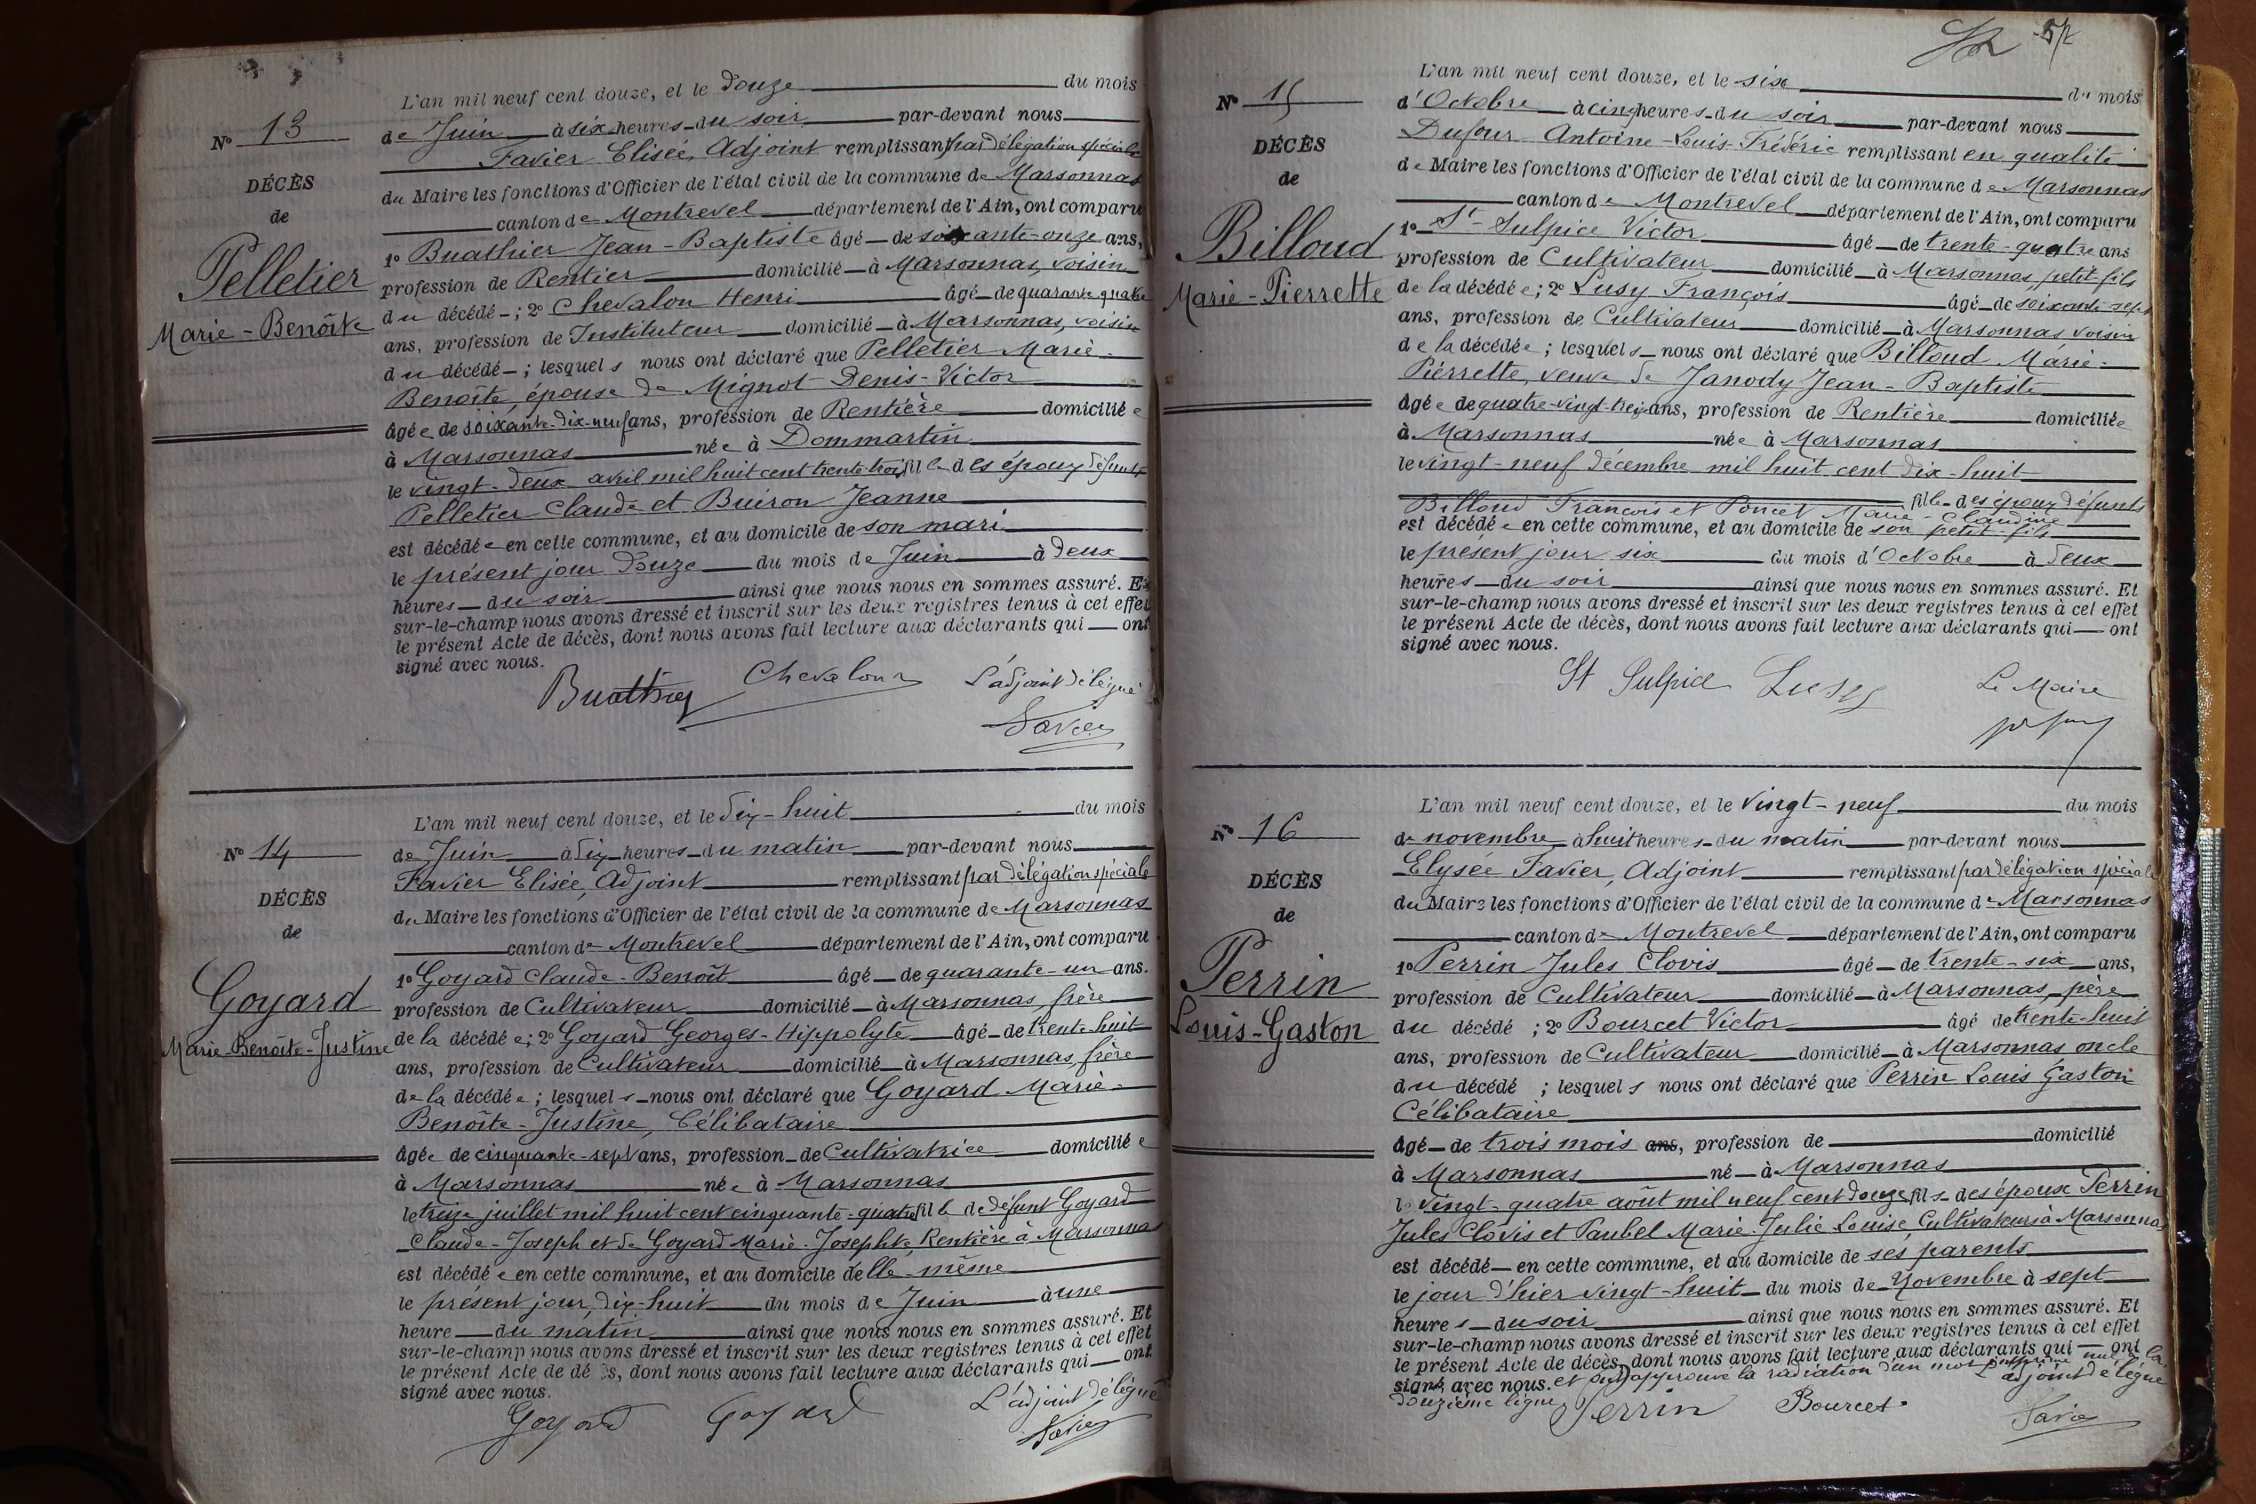 N° 13
DÉCÈS
de
Pelletier
Marie-Benoîte
L'an mil neuf cent douze, et le douze du mois
de Juin à six heures du soir par-devant nous
Favier Elisée, Adjoint remplissant par délégation spéciale
du Maire les fonctions d'Officier de l'état civil de la commune de Marsonnas
canton de Montrevel département de l'Ain, ont comparu
1° Buathier Jean-Baptiste âgé de soixante-onze ans,
profession de Rentier domicilié à Marsonnas, voisin
du décédé ; 2° Chevalon Henri âgé de quarante quatre
ans, profession de Instituteur domicilié à Marsonnas, voisin
du décédé ; lesquels nous ont déclaré que Pelletier Marie-
Benoîte, épouse de Mignot Denis-Victor
âgée de soixante-dix-neuf ans, profession de Rentière domiciliée
à Marsonnas née à Dommartin
le vingt-deux avril mil huit cent trente-trois fille des époux défunts
Pelletier Claude et Buiron Jeanne
est décédée en cette commune, et au domicile de son mari
le présent jour douze du mois de Juin à deux
heures du soir ainsi que nous nous en sommes assuré. Et
sur-le-champ nous avons dressé et inscrit sur les deux registres tenus à cet effet
le présent Acte de décès, dont nous avons fait lecture aux déclarants qui ont
signé avec nous.
Buathier Chevalon L'adjoint délégué
Favier
N° 14
DÉCÈS
de
Goyard
Marie-Benoîte-Justine
L'an mil neuf cent douze, et le dix-huit du mois
de Juin à dix heures du matin par-devant nous
Favier Elisée, Adjoint remplissant par délégation spéciale
du Maire les fonctions d'Officier de l'état civil de la commune de Marsonnas
canton de Montrevel département de l'Ain, ont comparu
1° Goyard Claude-Benoît âgé de quarante-un ans.
profession de Cultivateur domicilié à Marsonnas, frère
de la décédée ; 2° Goyard Georges-Hippolyte âgé de trente-huit
ans, profession de Cultivateur domicilié à Marsonnas, frère
de la décédée ; lesquels nous ont déclaré que Goyard Marie-
Benoîte-Justine, Célibataire
âgée de cinquante-sept ans, profession de Cultivatrice domiciliée
à Marsonnas née à Marsonnas
le treize juillet mil huit cent cinquante-quatre fille de défunt Goyard
Claude-Joseph et de Goyard Marie-Josephte, Rentière à Marsonnas
est décédée en cette commune, et au domicile d'elle-même
le présent jour, dix-huit du mois de Juin à une
heure du matin ainsi que nous nous en sommes assuré. Et
sur-le-champ nous avons dressé et inscrit sur les deux registres tenus à cet effet
le présent Acte de décès, dont nous avons fait lecture aux déclarants qui ont
signé avec nous.
Goyard Goyard L'adjoint délégué
Favier
52
N° 15
DÉCÈS
de
Billoud
Marie-Pierrette
L'an mil neuf cent douze, et le six du mois
d'Octobre à cinq heures du soir par-devant nous
Dufour Antoine-Louis-Frédéric remplissant en qualité
de Maire les fonctions d'Officier de l'état civil de la commune de Marsonnas
canton de Montrevel département de l'Ain, ont comparu
1° St-Sulpice Victor âgé de trente-quatre ans
profession de Cultivateur domicilié à Marsonnas, petit-fils
de la décédée ; 2° Lusy François âgé de soixante-sept
ans, profession de Cultivateur domicilié à Marsonnas voisin
de la décédée ; lesquels nous ont déclaré que Billoud Marie-
Pierrette, veuve de Janody Jean-Baptiste
âgée de quatre-vingt-treize ans, profession de Rentière domiciliée
à Marsonnas née à Marsonnas
le vingt-neuf décembre mil huit cent dix-huit
fille des époux défunts
Billoud François et Poncet Marie-Claudine
est décédée en cette commune, et au domicile de son petit-fils
le présent jour six du mois d'Octobre à deux
heures du soir ainsi que nous nous en sommes assuré. Et
sur-le-champ nous avons dressé et inscrit sur les deux registres tenus à cet effet
le présent Acte de décès, dont nous avons fait lecture aux déclarants qui ont
signé avec nous.
St Sulpice Lusy Le Maire
N° 16
DÉCÈS
de
Perrin
Louis-Gaston
L'an mil neuf cent douze, et le vingt-neuf du mois
de novembre à huit heures du matin par-devant nous
Elysée Favier, Adjoint remplissant par délégation spéciale
du Maire les fonctions d'Officier de l'état civil de la commune de Marsonnas
canton de Montrevel département de l'Ain, ont comparu
1° Perrin Jules Clovis âgé de trente-six ans,
profession de Cultivateur domicilié à Marsonnas, père
du décédé ; 2° Bourcet Victor âgé de trente-huit
ans, profession de Cultivateur domicilié à Marsonnas, oncle
du décédé ; lesquels nous ont déclaré que Perrin Louis Gaston
Célibataire
âgé de trois mois ans, profession de domicilié
à Marsonnas né à Marsonnas
le vingt-quatre août mil neuf cent douze fils des époux Perrin
Jules Clovis et Paubel Marie-Julie Louise, Cultivateurs à Marsonnas
est décédé en cette commune, et au domicile de ses parents
le jour d'hier vingt-huit du mois de Novembre à sept
heures du soir ainsi que nous nous en sommes assuré. Et
sur-le-champ nous avons dressé et inscrit sur les deux registres tenus à cet effet
le présent Acte de décès, dont nous avons fait lecture aux déclarants qui ont
signé avec nous. et ont approuvé la radiation d'un mot imprimé nul à la
douzième ligne Perrin Bourcet adjoint délégué
Favier